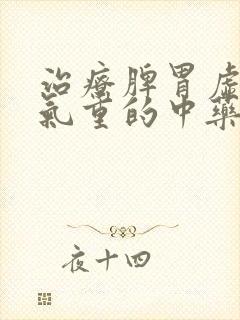 治療脾胃虛
氣重的中藥
夜十四